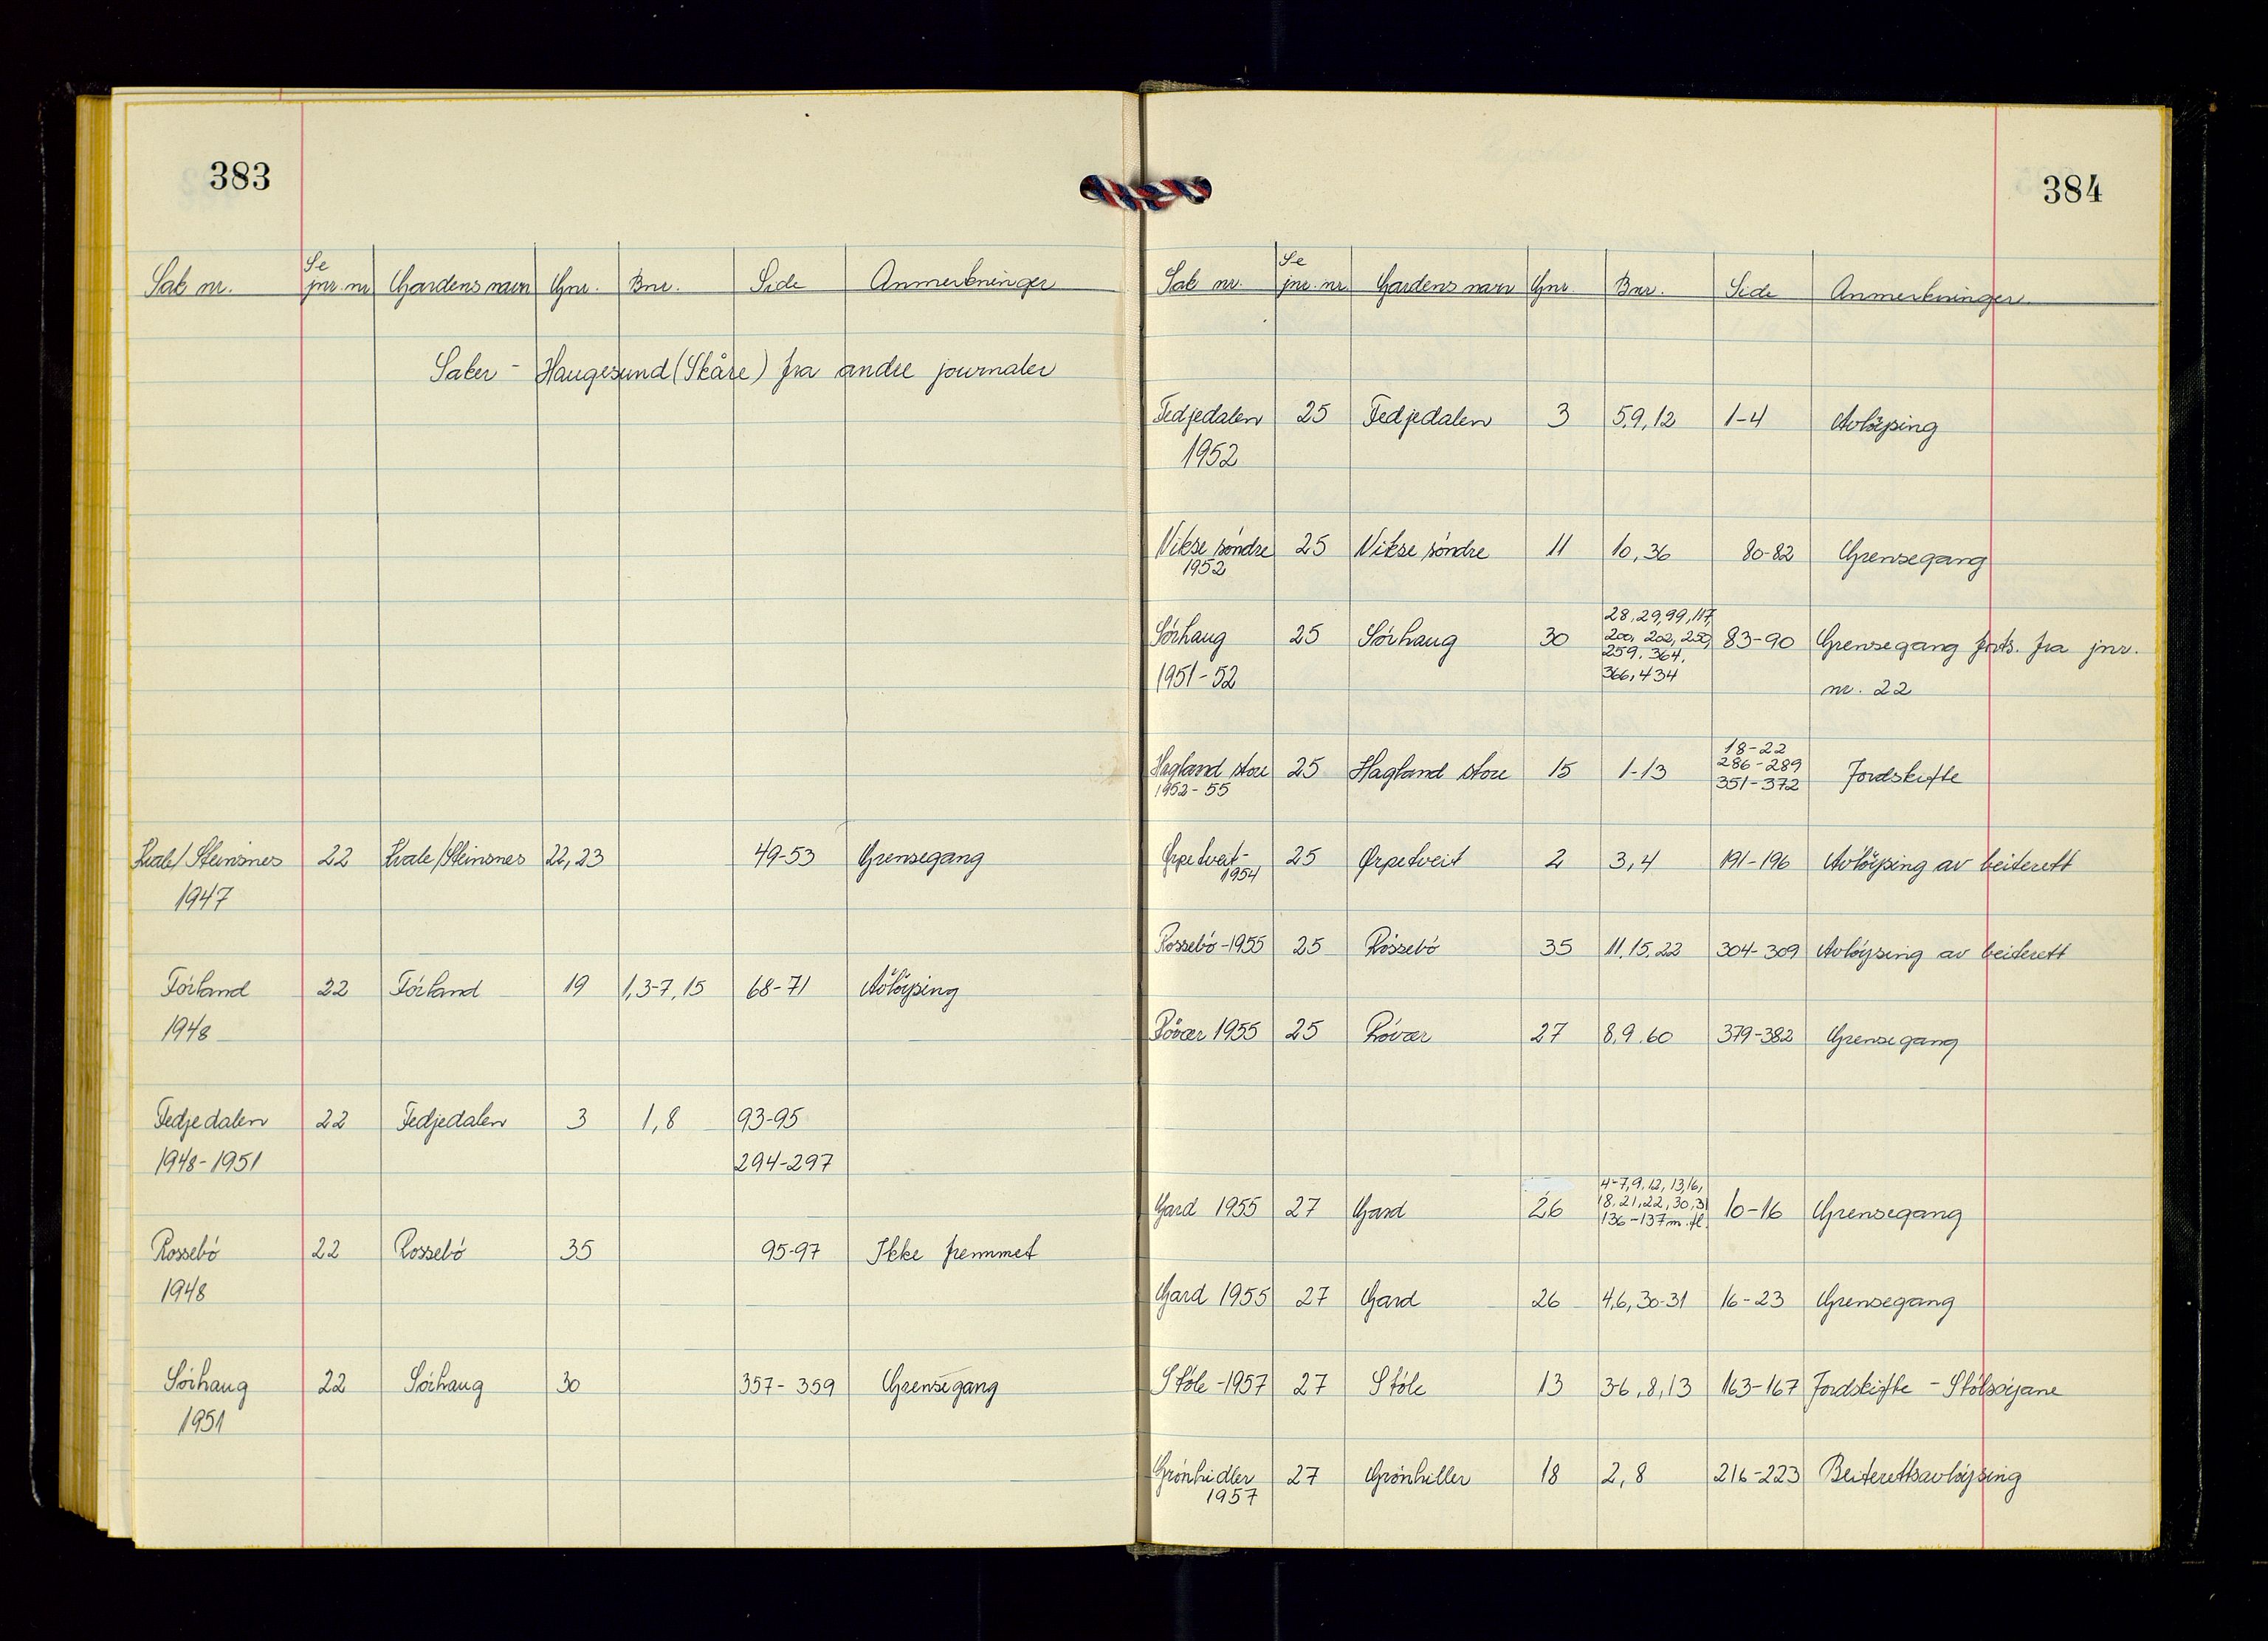 383
Sak nr. Se jnr. nr Gardens navn Gnr. Bnr. Side Anmerkninger
Saker - Haugesund (Skåre) fra andre journaler
Kvale/Steinsnes 22 Kvale/Steinsnes 22, 23 49-53 Grensegang
1947
Förland 22 Förland 19 1, 3-7, 15 68-71 Avlöysing
1948
Fedjedalen 22 Fedjedalen 3 1, 8 93-95
1948-1951 294-297
Rossebö 22 Rossebö 35 95-97 Ikke fremmet
1948
Sörhaug 22 Sörhaug 30 357-359 Grensegang
1951
384
Sak nr. Se jnr. nr. Gardens navn Gnr Bnr. Side Anmerkninger
Fedjedalen 25 Fedjedalen 3 5,9,12 1-4 Avlöysing
1952
Vikse söndre 25 Vikse söndre 11 10, 36 80-82 Grensegang
1952
28, 29, 99, 117,
Sörhaug 25 Sörhaug 30 200, 202, 250, 83-90 Grensegang forts. fra jnr.
259, 364,
1951-52 366, 434 nr. 22
18-22
Hagland store 25 Hagland store 15 1-13 286-289 Jordskifte
1952-55 351-372
Ørpetveit- 25 Ørpetveit 2 3, 4 191-196 Avlöysing av beiterett
1954
Rossebö-1955 25 Rossebö 35 11, 15, 22 304-309 Avlöysing av beiterett
Rövær 1955 25 Rövær 27 8, 9, 60 379-382 Grensegang
4-7, 9, 12, 13, 16,
Gard 1955 27 Gard 26 18, 21, 22, 30, 31 10-16 Grensegang
136-137 m.fl.
Gard 1955 27 Gard 26 4,6, 30-31 16-23 Grensegang
Stöle-1957 27 Stöle 13 3-6, 8, 13 163-167 Jordskifte - Stölsöyane
Grönhidler 27 Grönhiller 18 2, 8 216-223 Beiterettsavlöysing
1957